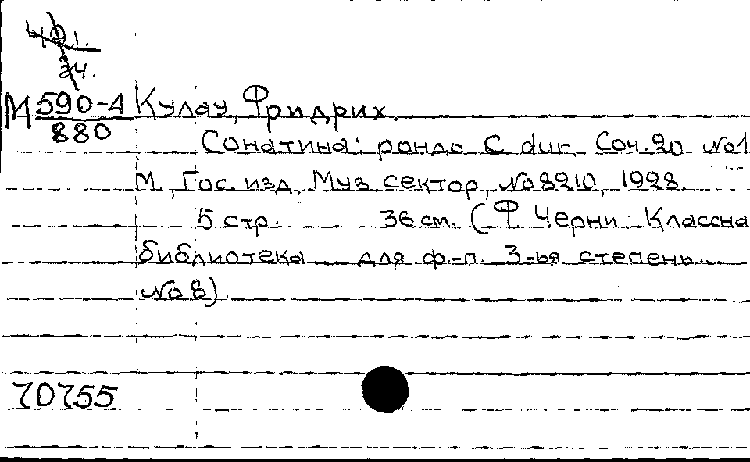 34.
М 590-4 Кулау, Фридрих.
880
Сонатина: рондо C dur. Соч. 20 №1
М., Гос. изд. Муз. сектор, №8210, 1928.
5 стр. 36 см. (Ф. Черни. Классна
библиотека для ф.-п. 3-ья степень
№8)
70755